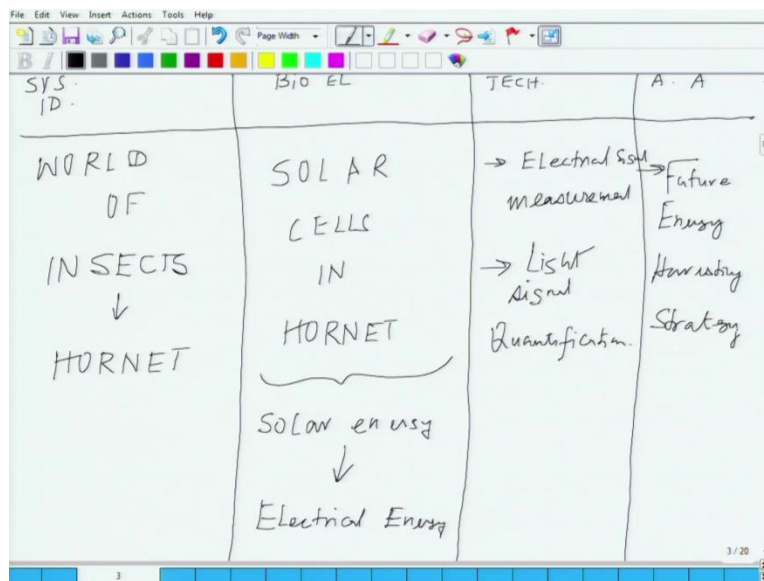 File Edit View Insert Actions Tools Help
Page Width
B I
SYS. BIO EL TECH. A. A
ID.
WORLD
OF
INSECTS
↓
HORNET
SOLAR
CELLS
IN
HORNET
Solar energy
↓
Electrical Energy
→ Electrical signal
measurement
→ Light
signal
Quantification.
→ Future
Energy
Harvesting
Strategy
3/20
3